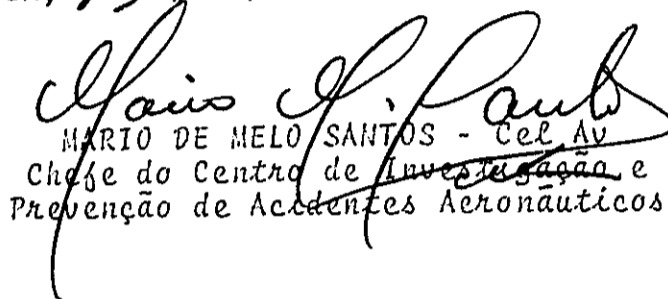 MARIO DE MELO SANTOS - Cel Av
Chefe do Centro de Investigação e
Prevenção de Acidentes Aeronáuticos